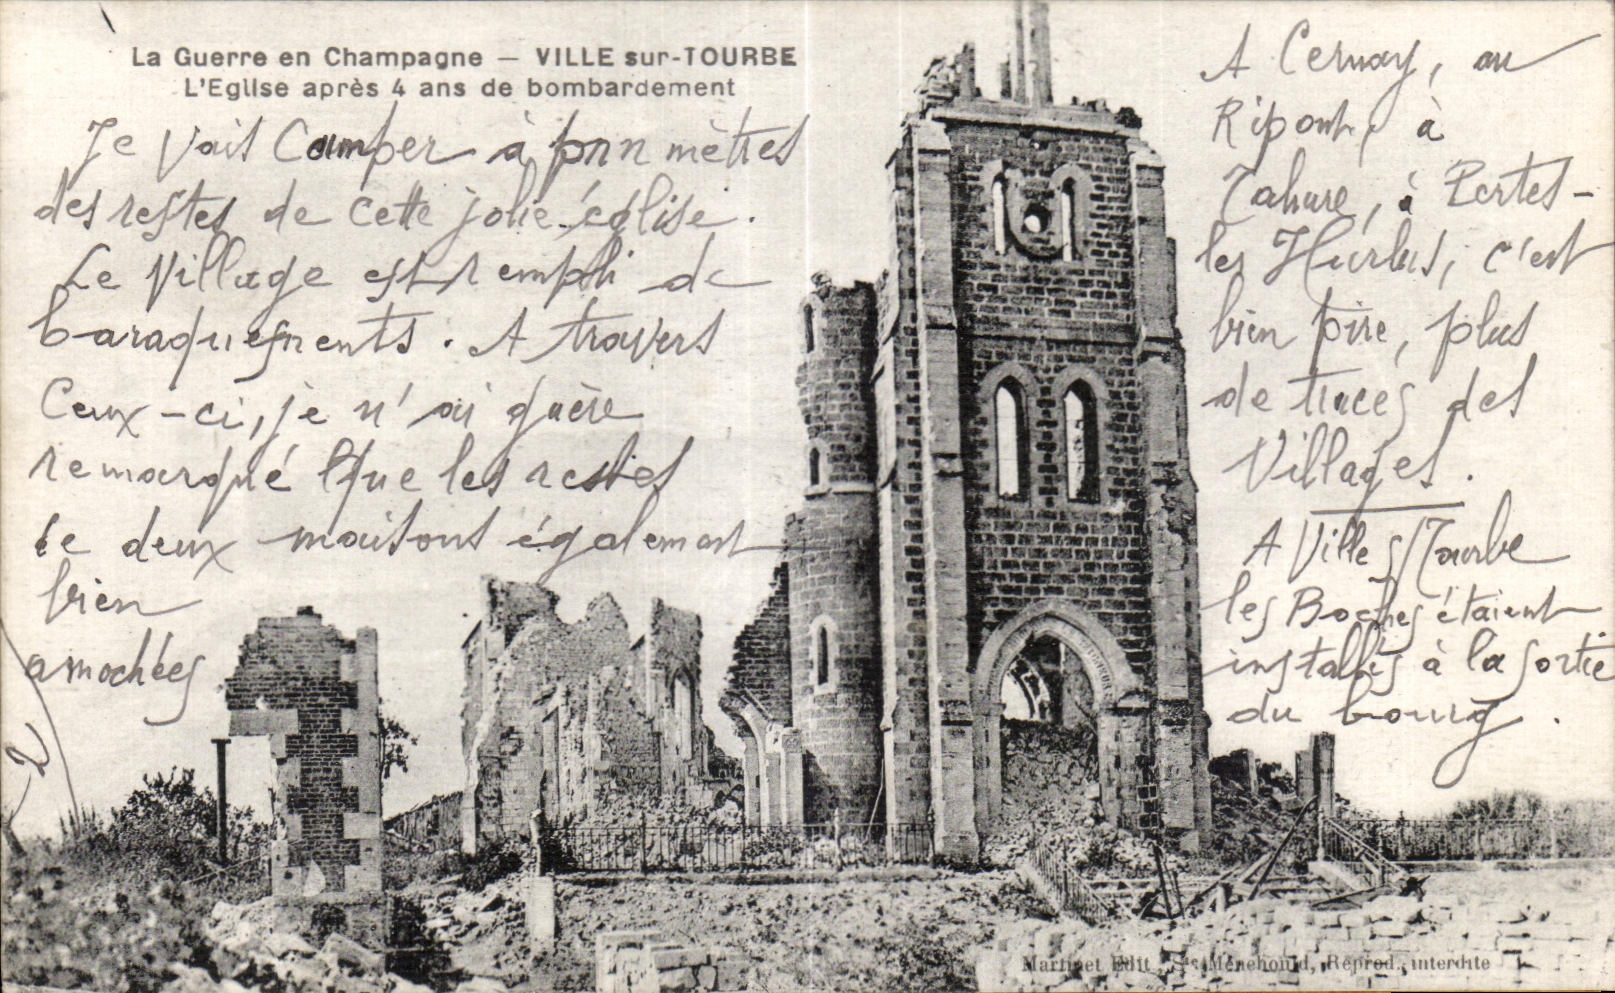 La Guerre en Champagne — VILLE sur-TOURBE
L'Eglise après 4 ans de bombardement
Je vais camper à mètres
des restes de cette jolie église.
Le village est rempli de
baraquements. A travers
ceux-ci, je n'ai guère
remarqué que les restes
de deux maisons également
bien
amochées
2
A Cernay, au
Ripont, à
Tahure, à Pertes-
les Hurlus, c'est
bien pire, plus
de traces des
villages.
A Ville s/Tourbe
les Boches étaient
installés à la sortie
du bourg.
Martinet Edit. Ste-Menehould, Reprod. interdite